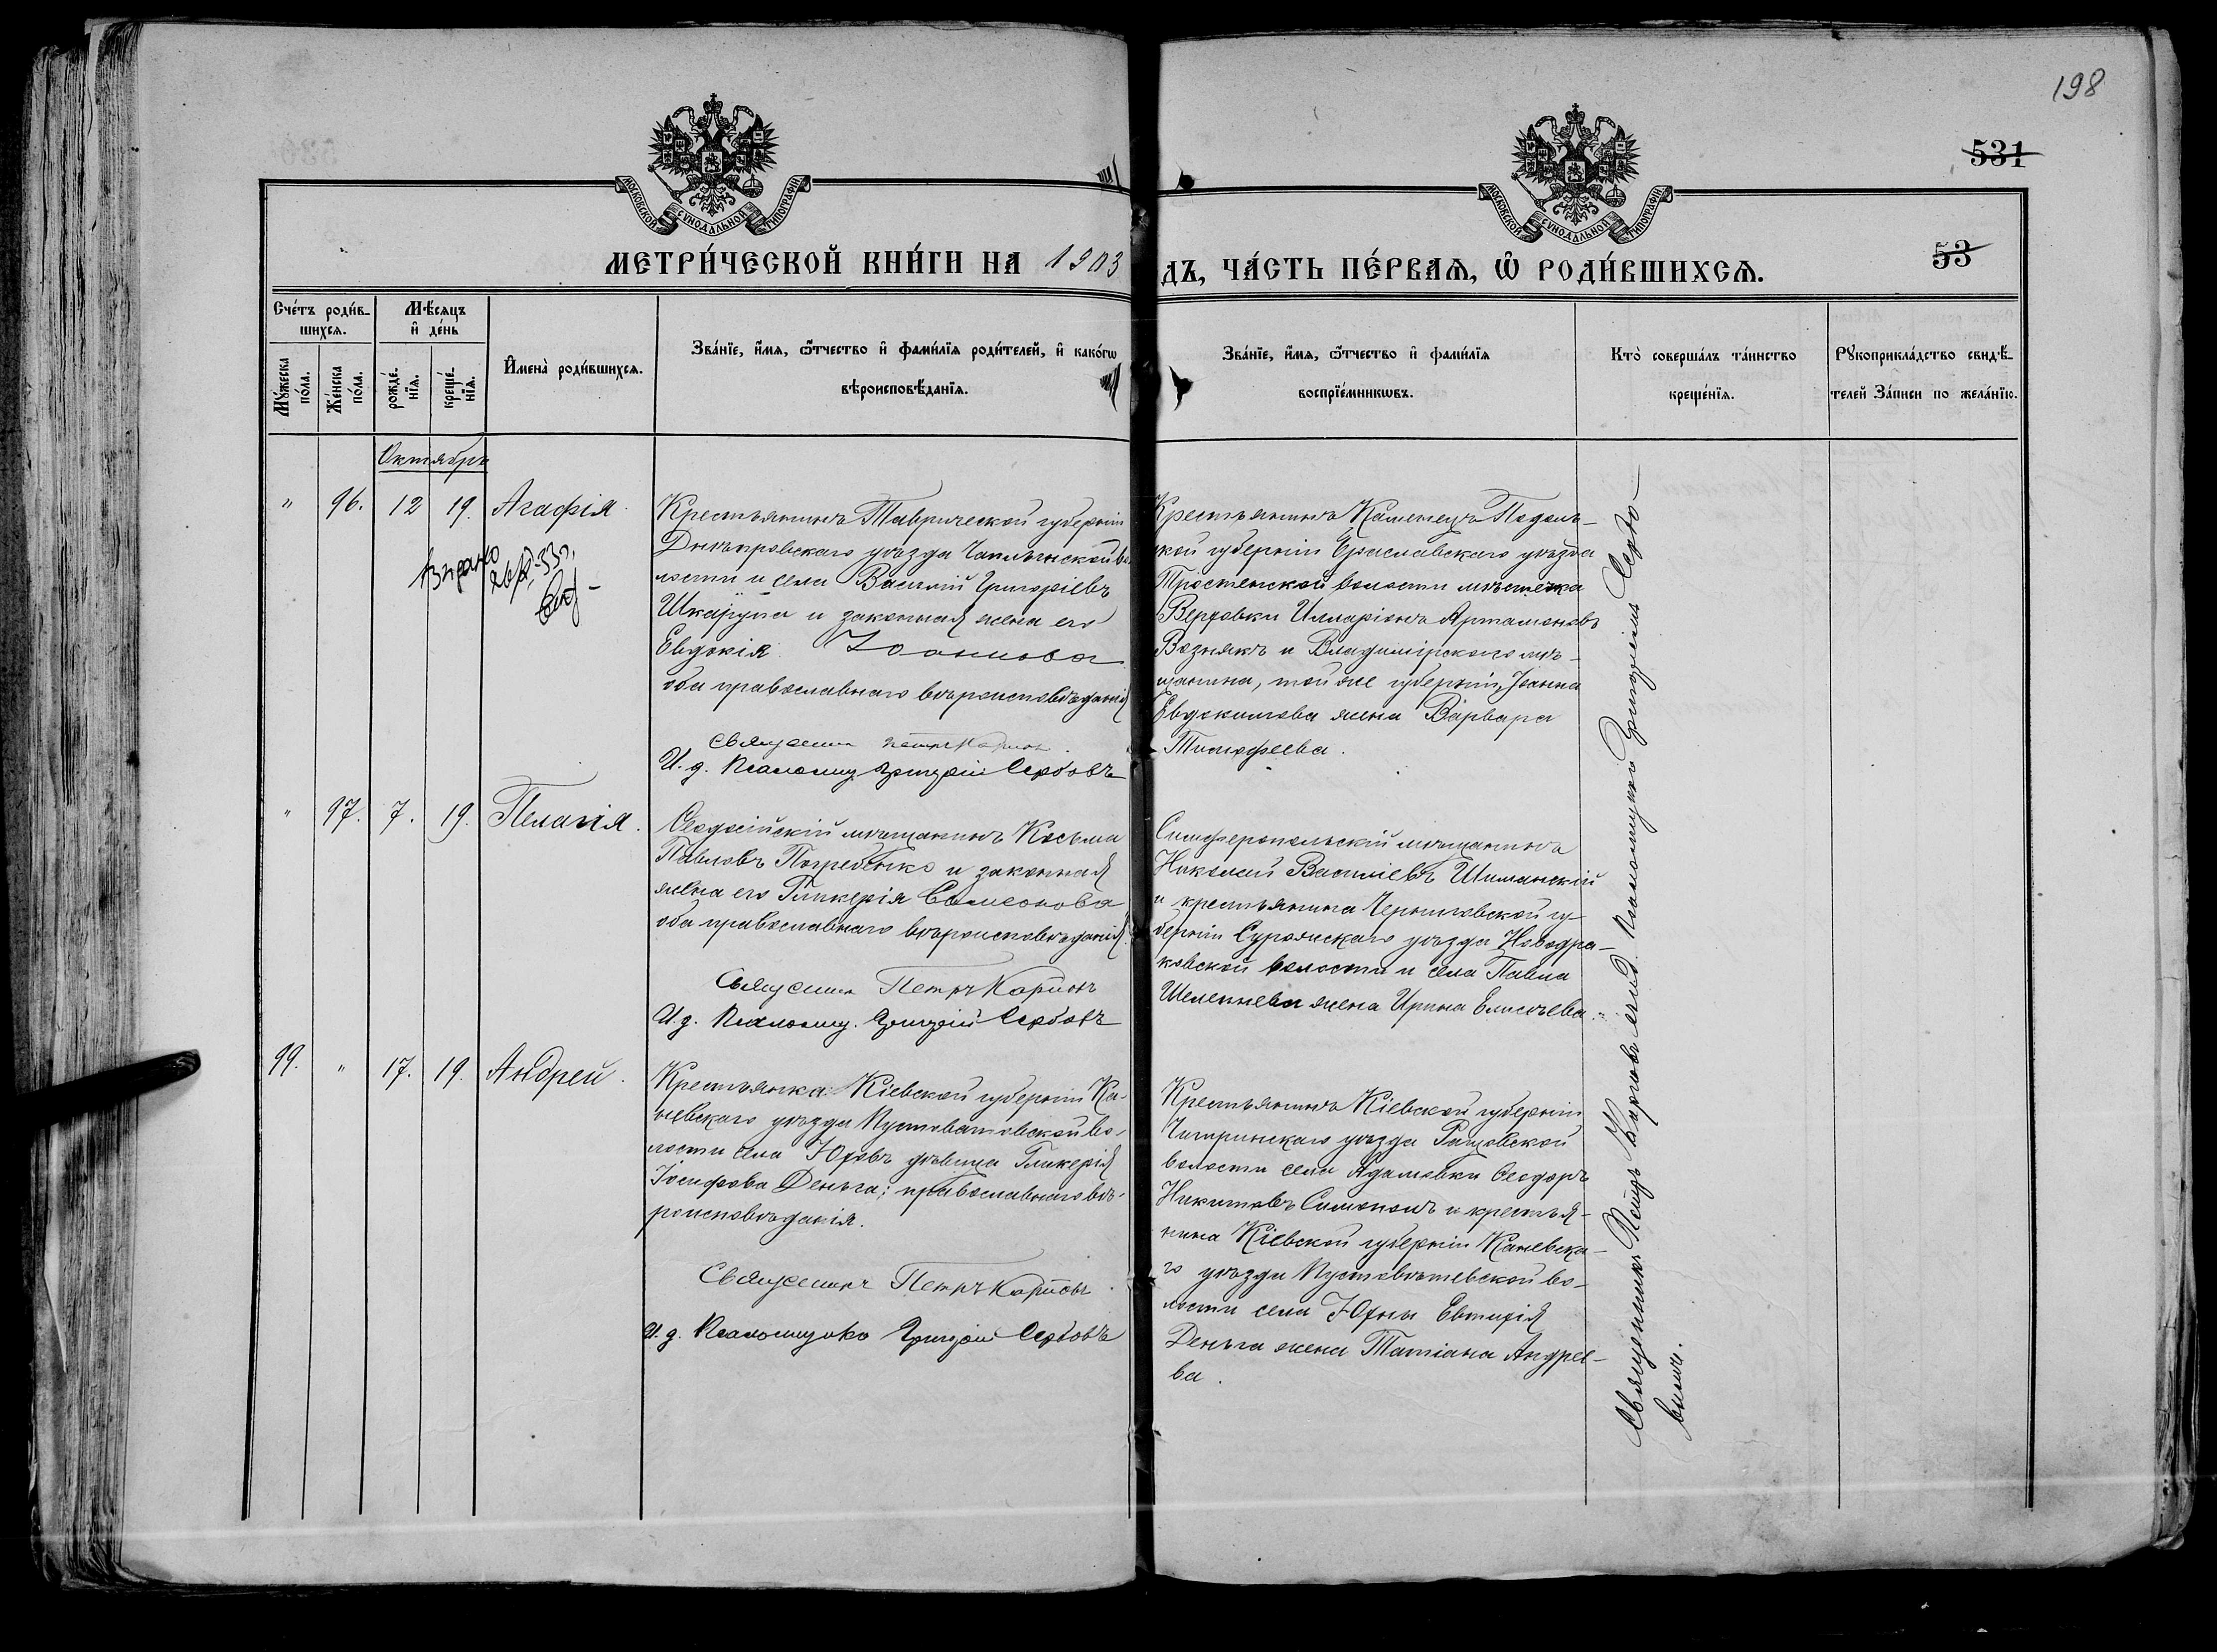 198
531
МОСКОВСКОЙ СѴНОДАЛЬНОЙ ТИПОГРАФІИ
МОСКОВСКОЙ СѴНОДАЛЬНОЙ ТИПОГРАФІИ
МЕТРИ́ЧЕСКОЙ КНИ́ГИ НА 1903
ДЪ, ЧА́СТЬ ПЕ́РВАѦ, Ѡ РОДИ́ВШИХСѦ.
53
Сче́тъ роди́в-
шихсѧ.
Мѣ́сѧцъ
и҆ де́нь
Мꙋ́жеска
по́ла.
Же́нска
по́ла.
рожде́-
нїѧ.
креще́-
нїѧ.
И҆мена̀ роди́вшихсѧ.
Зва́нїе, и҆́мѧ, ѻ҆́тчество и҆ фами́лїѧ роди́телей, и҆ како́гѡ
вѣроисповѣ́данїѧ.
Зва́нїе, и҆́мѧ, ѻ҆́тчество и҆ фами́лїѧ
воспрїе́мникѡвъ.
Кто̀ соверша́лъ та́инство
креще́нїѧ.
Рꙋкоприкла́дство свидѣ́-
телей За́писи по жела́нїю.
Октябрь
" 96. 12 19. Агафія.
Крестьянинъ Таврической губерніи
Днѣпровскаго уѣзда Чаплынской во
лости и села Василій Григоріевъ
Шкарупа и законная жена его
Евдокія Іоаннова
оба православнаго вѣроисповѣданія
Священник Петръ Карпов.
И. д. Псаломщ. Григорій Сербовъ
Крестьянинъ Каменецъ Подоль-
ской губерніи Ерасславскаго уѣзда
Тростенской волости мѣстечка
Вердовки Илларіонъ Артамоновъ
Вознякъ и Владимірскаго мѣ-
щанина, той же губерніи, Іоанна
Евдокимова жена Варвара
Тимофеева.
" 97. 7. 19. Пелагія.
Ѳеодосійскій мѣщанинъ Косьма
Павловъ Погребенко и законная
жена его Гликерія Самсонова
оба православнаго вѣроисповѣданія.
Священник Петръ Карповъ
И. д. Псаломщ. Григорій Сербовъ
Симферопольскій мѣщанинъ
Николай Василіевъ Шиманскій
и крестьянина Черниговской гу-
берніи Суражскаго уѣзда Новодра-
ковской волости и села Павла
Шелепнева жена Ирина Елисѣева.
99. " 17. 19. Андрей.
Крестьянка Кіевской губерніи Ка-
невскаго уѣзда Пустоватовской во-
лости села Юровъ дѣвица Гликерія
Іосифова Деньга; православнаго вѣ-
роисповѣданія.
Священникъ Петръ Карповъ.
И. д. Псаломщика Григорій Сербовъ
Крестьянинъ Кіевской губерніи
Чигиринскаго уѣзда Рацовской
волости села Адамовки Ѳеодоръ
Никитовъ Симонъ и крестья-
нина Кіевской губерніи Каневска-
го уѣзда Пустоватевской во-
лости села Юры Евтихія
Деньга жена Татіана Андрее-
ва.
Священникъ Петръ Карповъ съ и. д. Псаломщика Григоріемъ Сербо-
вымъ.